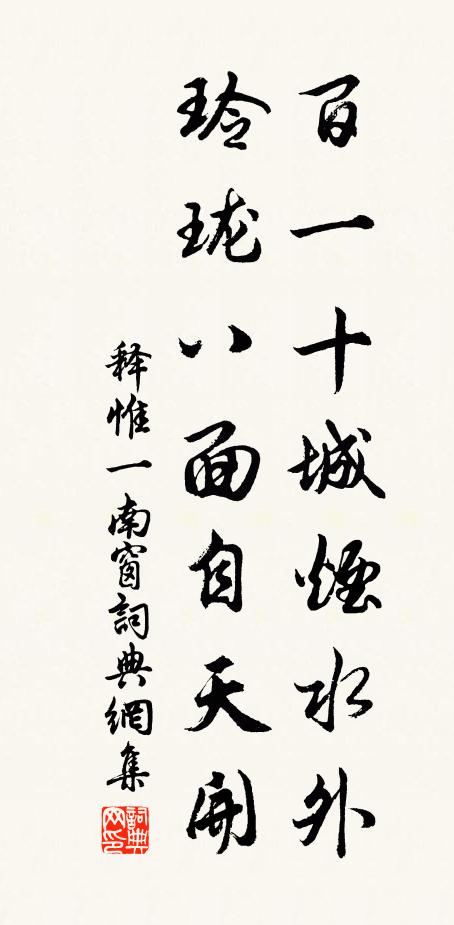 百一十城煙水外
玲瓏八面自天開
釋惟一南窗詞典網集
詞典网印